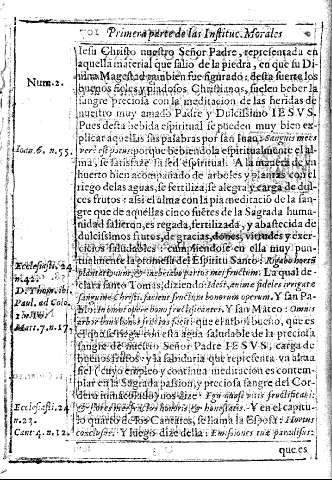 Primera parte de las Instituc. Morales
Iesu Christo nuestro Señor Padre, representada en
aquella material que salio de la piedra, en que su Di
uina Magestad tambien fue figurado: desta suerte los
Num. 2.
buenos fieles y piadosos Christianos, suelen beber la
sangre preciosa con la meditacion de las heridas de
nuestro muy amado Padre y Dulcissimo IESVS.
Pues desta bebida espiritual se pueden muy bien ex
plicar aquellas palabras por san Iuan, Sanguis meus
Ioan. 6. n. 55.
vere est potus, porque bebiendola espiritualmente el al-
ma, se satisfaze la sed espiritual. A la manera de vn
huerto bien acompañado de arboles y plantas con el
riego de las aguas, se fertiliza, se alegra y carga de dul-
ces frutos: assi el alma con la pia meditacion de la san-
gre que de aquellas cinco fuẽtes de la Sagrada huma
nidad salieron, es regada, fertilizada, y abastecida de
dulcissimos frutos, de gracias, dones, virtudes y exer-
cicios saludables: cumpliendose en ella muy pun-
tualmente la promessa del Espiritu Santo: Rigabo hortũ
Ecclesiasti. 24
n. 42.
plantationum, & inebriabo partus mei fructum. La qual de-
D. Thom. ibi
clara santo Tomas, diziendo: Idest, anime fideles irrigatæ
Paul. ad Colo.
sanguine Christi, faciunt fructum bonorum operum. Y san Pa
blo: In omni opere bono fructificantes. Y san Mateo: Omnis
Matt. 7. n. 17.
arbor bona fructus bonos facit: que el arbol bueno, que es
el que se riega con esta agua saludable de la preciosa
sangre de nuestro Señor Padre IESVS, carga de
buenos frutos: y la sabiduria que representa vn alma
fiel (cuyo empleo y continua meditacion es contem-
plar en la Sagrada passion, y preciosa sangre del Cor-
dero inmaculado) nos dize: Ego quasi vitis fructificaui:
Ecclesiasti. 24
& flores mei fructus honoris, & honestatis. Y en el capitu-
n. 23.
lo quarto de los Cantares, se llama la Esposa: Hortus
Cant. 4. n. 12.
conclusus. Y luego dize della: Emissiones tuæ paradisus:
que es